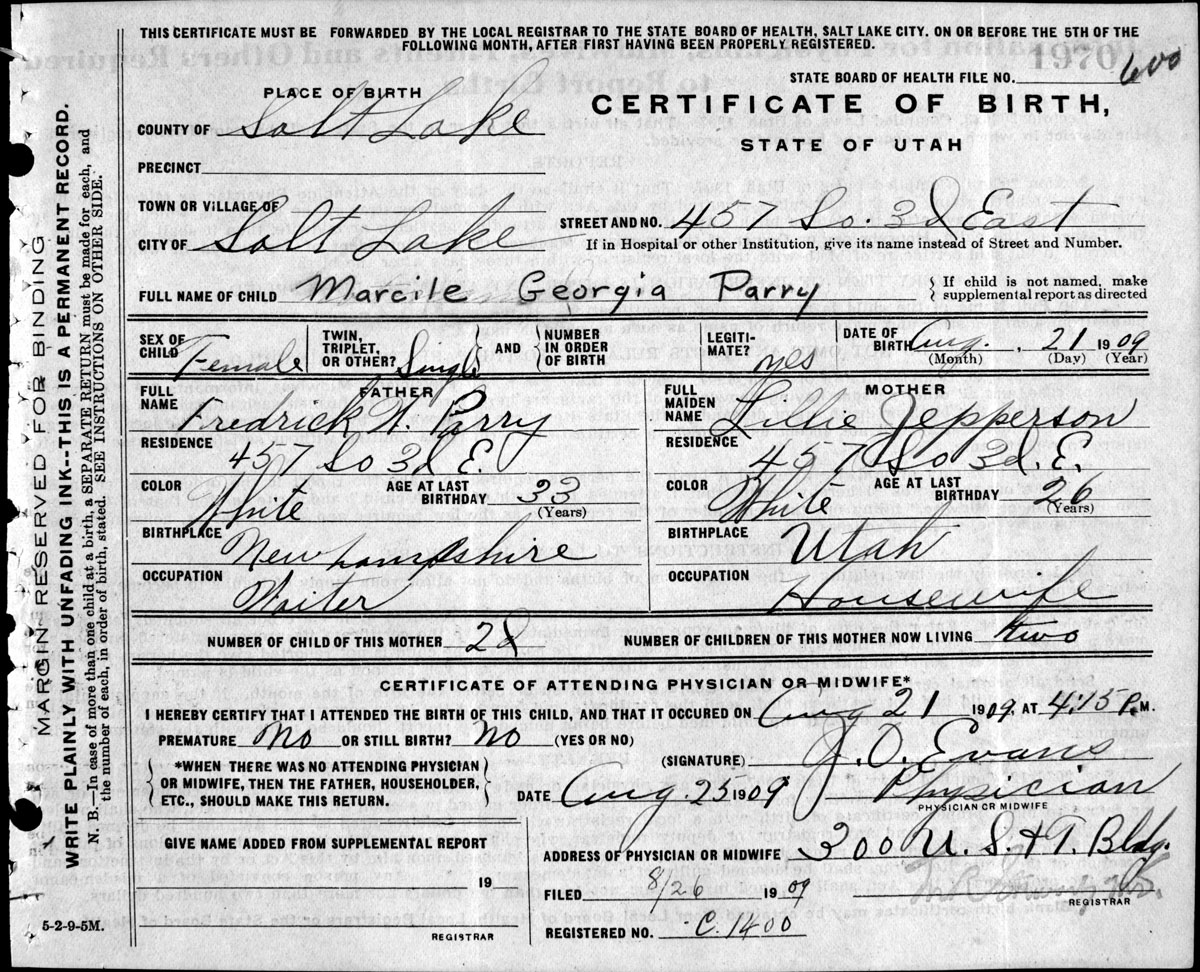 THIS CERTIFICATE MUST BE FORWARDED BY THE LOCAL REGISTRAR TO THE STATE BOARD OF HEALTH, SALT LAKE CITY. ON OR BEFORE THE 5TH OF THE
FOLLOWING MONTH, AFTER FIRST HAVING BEEN PROPERLY REGISTERED.
STATE BOARD OF HEALTH FILE NO. 600
PLACE OF BIRTH
CERTIFICATE OF BIRTH,
STATE OF UTAH
COUNTY OF Salt Lake
PRECINCT
TOWN OR VILLAGE OF
CITY OF Salt Lake
STREET AND NO. 457 So. 3d East
If in Hospital or other Institution, give its name instead of Street and Number.
FULL NAME OF CHILD Marcile Georgia Parry
If child is not named, make
supplemental report as directed
SEX OF CHILD Female
TWIN, TRIPLET, OR OTHER? Single
AND
NUMBER IN ORDER OF BIRTH
LEGITIMATE? yes
DATE OF BIRTH Aug. 21 1909
(Month) (Day) (Year)
FATHER
FULL NAME Fredrick W. Parry
RESIDENCE
457 So 3d E.
COLOR White
AGE AT LAST BIRTHDAY 33
(Years)
BIRTHPLACE
New hampshire
OCCUPATION
Waiter
MOTHER
FULL MAIDEN NAME Lillie Jepperson
RESIDENCE
457 So 3d. E.
COLOR White
AGE AT LAST BIRTHDAY 26
(Years)
BIRTHPLACE
Utah
OCCUPATION
Housewife
NUMBER OF CHILD OF THIS MOTHER 2d
NUMBER OF CHILDREN OF THIS MOTHER NOW LIVING two
CERTIFICATE OF ATTENDING PHYSICIAN OR MIDWIFE*
I HEREBY CERTIFY THAT I ATTENDED THE BIRTH OF THIS CHILD, AND THAT IT OCCURED ON Aug 21 1909, AT 4:15 P.M.
PREMATURE No OR STILL BIRTH? No (YES OR NO)
*WHEN THERE WAS NO ATTENDING PHYSICIAN
OR MIDWIFE, THEN THE FATHER, HOUSEHOLDER,
ETC., SHOULD MAKE THIS RETURN.
(SIGNATURE) J. O. Evans
DATE Aug. 25 1909 Physician
PHYSICIAN OR MIDWIFE
GIVE NAME ADDED FROM SUPPLEMENTAL REPORT
19
REGISTRAR
ADDRESS OF PHYSICIAN OR MIDWIFE 300 U. S. & T. Bldg.
FILED 8/26 1909
REGISTRAR
REGISTERED NO. C. 1400
5-2-9-5M.
MARGIN RESERVED FOR BINDING
WRITE PLAINLY WITH UNFADING INK--THIS IS A PERMANENT RECORD.
N. B.—In case of more than one child at a birth, a SEPARATE RETURN must be made for each, and
the number of each, in order of birth, stated. SEE INSTRUCTIONS ON OTHER SIDE.